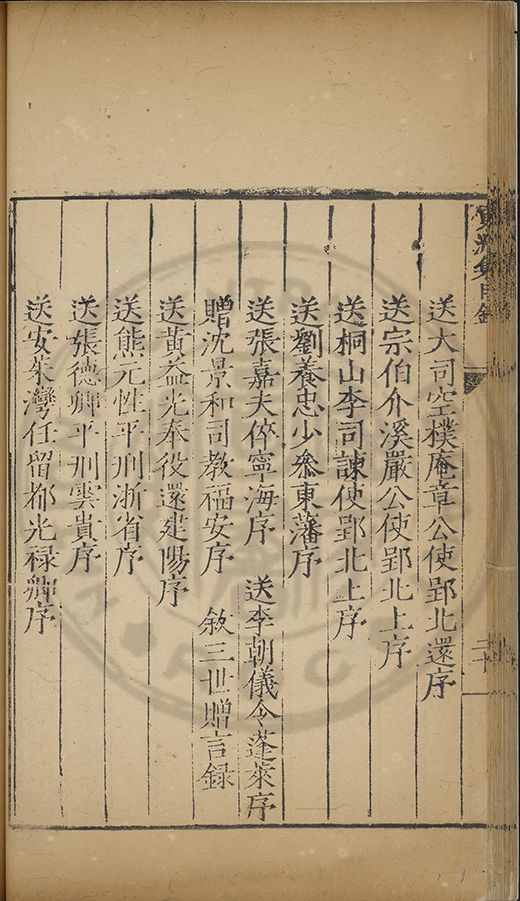 送大司空樸庵章公使郢北還序
送宗伯介溪嚴公使郢北上序
送桐山李司諫使郢北上序
送劉養忠少叅東藩序
送張嘉夫倅寧海序　送李朝儀令蓬萊序
贈沈景和司教福安序　敘三世贈言録
送黃益光奉役還建陽序
送熊元性平刑浙省序
送張德卿平刑雲貴序
送安茱灣任留都光禄卿序